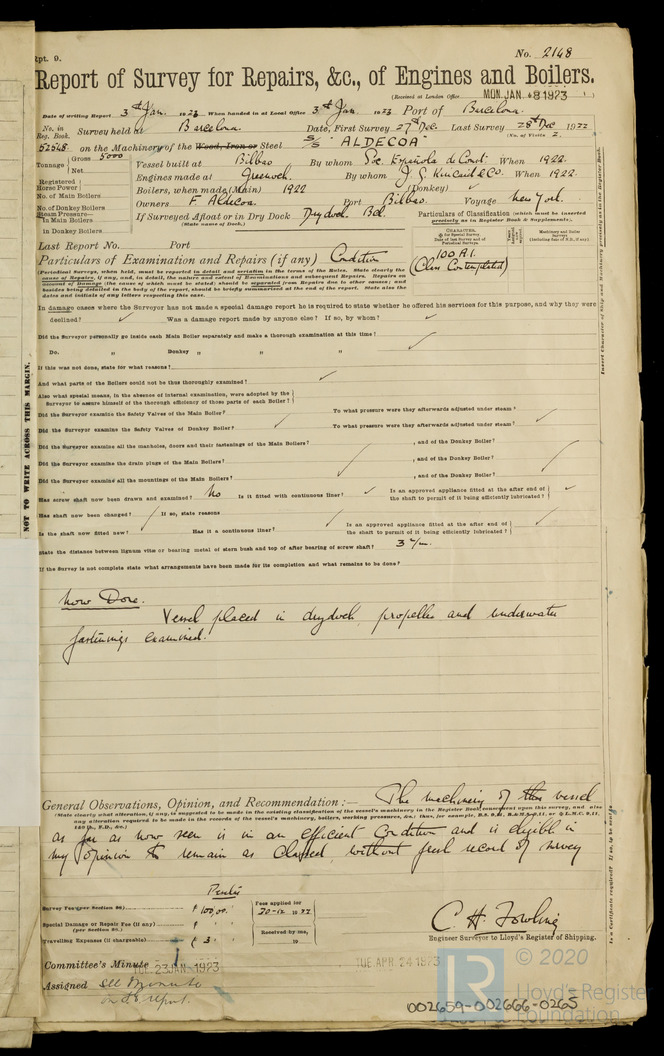 Rpt. 9.
No. 2148
Report of Survey for Repairs, &c., of Engines and Boilers.
(Received at London Office MON. JAN. -8 1923 )
Date of writing Report 3rd Jan. 1923 When handed in at Local Office 3rd Jan. 1923 Port of Barcelona.
No. in Reg. Book. Survey held at Barcelona. Date, First Survey 27th Dec. Last Survey 28th Dec 1922
(No. of Visits 2.
52548 on the Machinery of the Wood, Iron or Steel S/S "ALDECOA"
Tonnage Gross 5000 Net Vessel built at Bilbao By whom Soc. Española de Const. When 1922.
Engines made at Greenock. By whom J. G. Kincaid & Co. When 1922.
Registered Horse Power
Boilers, when made (Main) 1922 (Donkey) ✓
No. of Main Boilers
Owners F. Aldecoa. Port Bilbao. Voyage New York.
No. of Donkey Boilers
Steam Pressure— in Main Boilers
in Donkey Boilers
If Surveyed Afloat or in Dry Dock Drydock Bcl.
(State name of Dock.)
Particulars of Classification (which must be inserted precisely as in Register Book & Supplements).
Last Report No. Port
Particulars of Examination and Repairs (if any) Condition
100 A.1.
(Class Contemplated)
(Periodical Surveys, when held, must be reported in detail and seriatim in the terms of the Rules. State clearly the cause of Repairs, if any, and, in detail, the nature and extent of Examinations and subsequent Repairs. Repairs on account of Damage (the cause of which must be stated) should be separated from Repairs due to other causes; and besides being detailed in the body of the report, should be briefly summarized at the end of the report. State also the dates and initials of any letters respecting this case.
In damage cases where the Surveyor has not made a special damage report he is required to state whether he offered his services for this purpose, and why they were
declined? ✓ Was a damage report made by anyone else? If so, by whom? ✓
Did the Surveyor personally go inside each Main Boiler separately and make a thorough examination at this time? ✓
Do. „ Donkey „ „ „
If this was not done, state for what reasons?
And what parts of the Boilers could not be thus thoroughly examined? ✓
Also what special means, in the absence of internal examination, were adopted by the Surveyor to assure himself of the thorough efficiency of those parts of each Boiler?
Did the Surveyor examine the Safety Valves of the Main Boiler? To what pressure were they afterwards adjusted under steam? ✓
Did the Surveyor examine the Safety Valves of Donkey Boiler? ✓ To what pressure were they afterwards adjusted under steam? ✓
Did the Surveyor examine all the manholes, doors and their fastenings of the Main Boilers? , and of the Donkey Boiler?
Did the Surveyor examine the drain plugs of the Main Boilers? ✓ , and of the Donkey Boiler? ✓
Did the Surveyor examine all the mountings of the Main Boilers? , and of the Donkey Boiler?
Has screw shaft now been drawn and examined? No Is it fitted with continuous liner? ✓ Is an approved appliance fitted at the after end of the shaft to permit of it being efficiently lubricated? ✓
Has shaft now been changed? If so, state reasons
Is the shaft now fitted new? ✓ Has it a continuous liner? ✓ Is an approved appliance fitted at the after end of the shaft to permit of it being efficiently lubricated? ✓
State the distance between lignum vitæ or bearing metal of stern bush and top of after bearing of screw shaft? 3 m/m.
If the Survey is not complete state what arrangements have been made for its completion and what remains to be done?
NOT TO WRITE ACROSS THIS MARGIN.
Now Done.
Vessel placed in drydock, propeller and underwater
fastenings examined.
General Observations, Opinion, and Recommendation:— The machinery of this vessel
as far as now seen is in an efficient condition and is eligible in
my opinion to remain as Classed, without fresh record of survey
Pesetas
Survey Fee (per Section 29) ₧ 100.00
Fees applied for 30-12 1922
Special Damage or Repair Fee (if any) (per Section 29.)
Received by me, 19
Travelling Expenses (if chargeable) ₧ 3
C. H. Fowling
Engineer Surveyor to Lloyd's Register of Shipping.
Committee's Minute TUE. 23 JAN. 1923 TUE APR 24 1923
Assigned See Minute
on F.E. report.
© 2020
Lloyd's Register
Foundation
002659-002666-0265